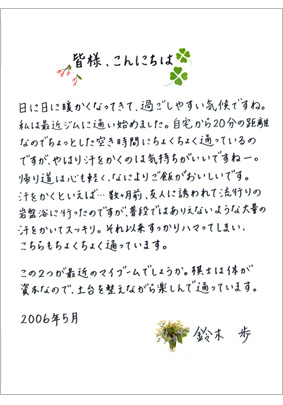 皆様、こんにちは
日に日に暖かくなってきて、過ごしやすい気候ですね。
私は最近ジムに通い始めました。自宅から20分の距離
なのでちょっとした空き時間にちょくちょく通っているの
ですが、やはり汗をかくのは気持ちがいいですねー。
帰り道は心も軽く、なによりご飯がおいしいです。
汗をかくといえば…数ヶ月前、友人に誘われて流行りの
岩盤浴に行ったのですが、普段ではありえないような大量の
汗をかいてスッキリ。それ以来すっかりハマってしまい、
こちらもちょくちょく通っています。
この2つが最近のマイブームでしょうか。棋士は体が
資本なので、土台を整えながら楽しんで通っています。
2006年5月
鈴木 歩